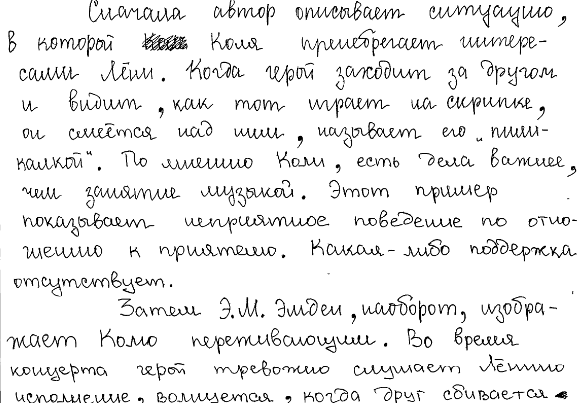 Сначала автор описывает ситуацию,
в которой Коля пренебрегает интере-
сами Лёни. Когда герой заходит за другом
и видит, как тот играет на скрипке,
он смеётся над ним, называет его „пили-
калкой“. По мнению Коли, есть дела важнее,
чем занятие музыкой. Этот пример
показывает неприятное поведение по отно-
шению к приятелю. Какая-либо поддержка
отсутствует.
Затем Э.М. Эмден, наоборот, изобра-
жает Колю переживающим. Во время
концерта герой тревожно слушает Лёнино
исполнение, волнуется, когда друг сбивается